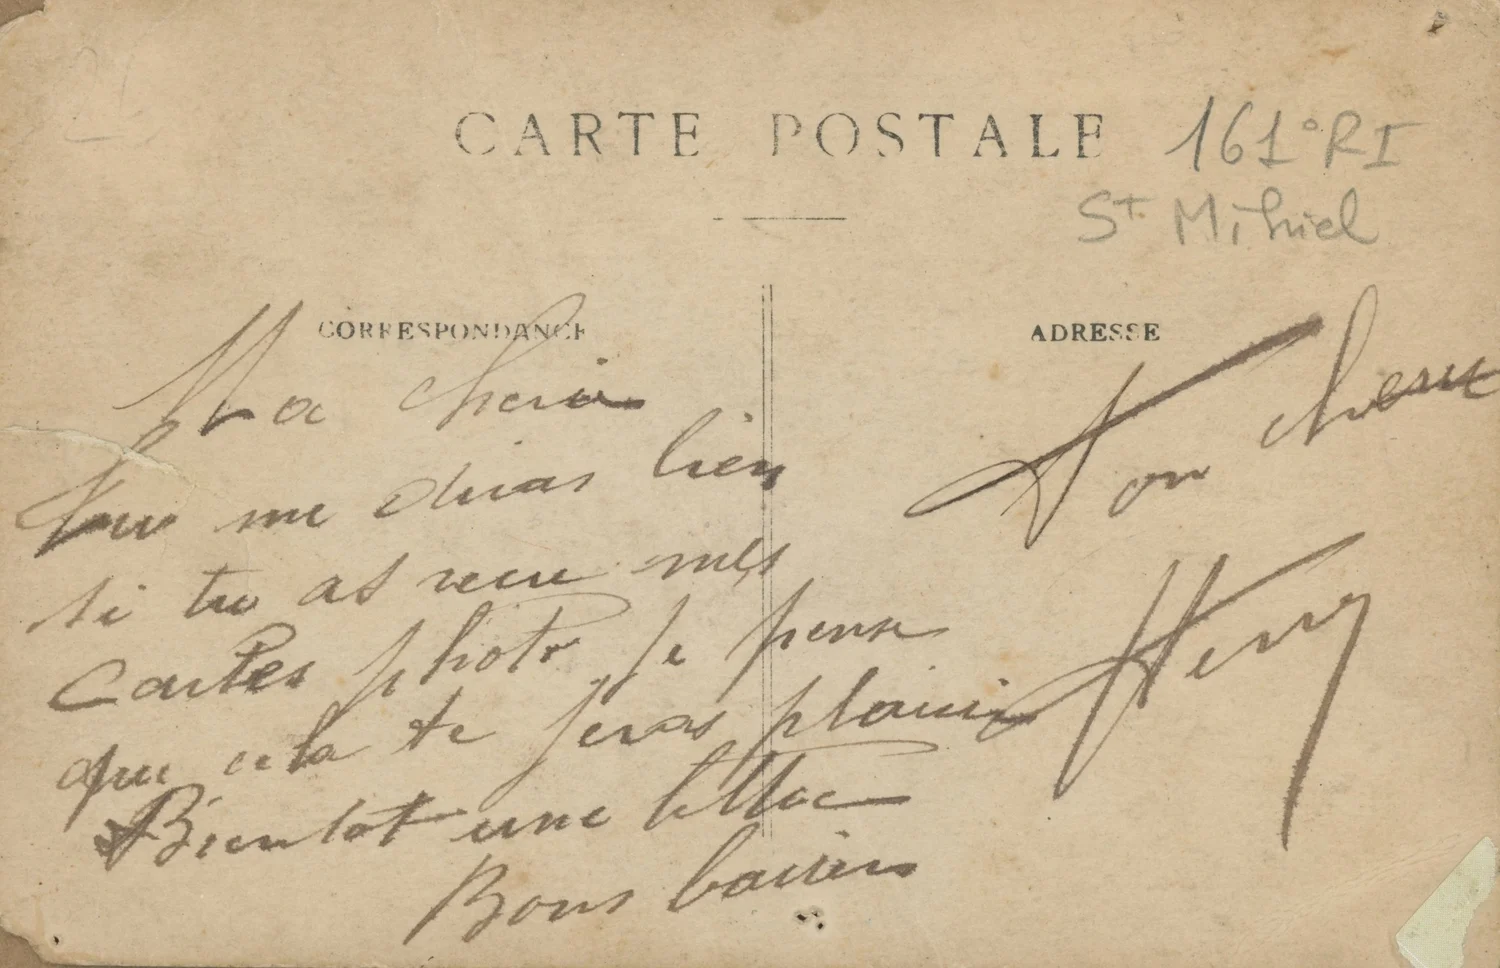 CARTE POSTALE
161° RI
St Mihiel
CORRESPONDANCE
ADRESSE
Ma cherie
tu me diras bien
si tu as recu mes
cartes photo je pense
que cela te feras plaisir
Bientot une lettre
Bons baisers
Ton cheri
Henry